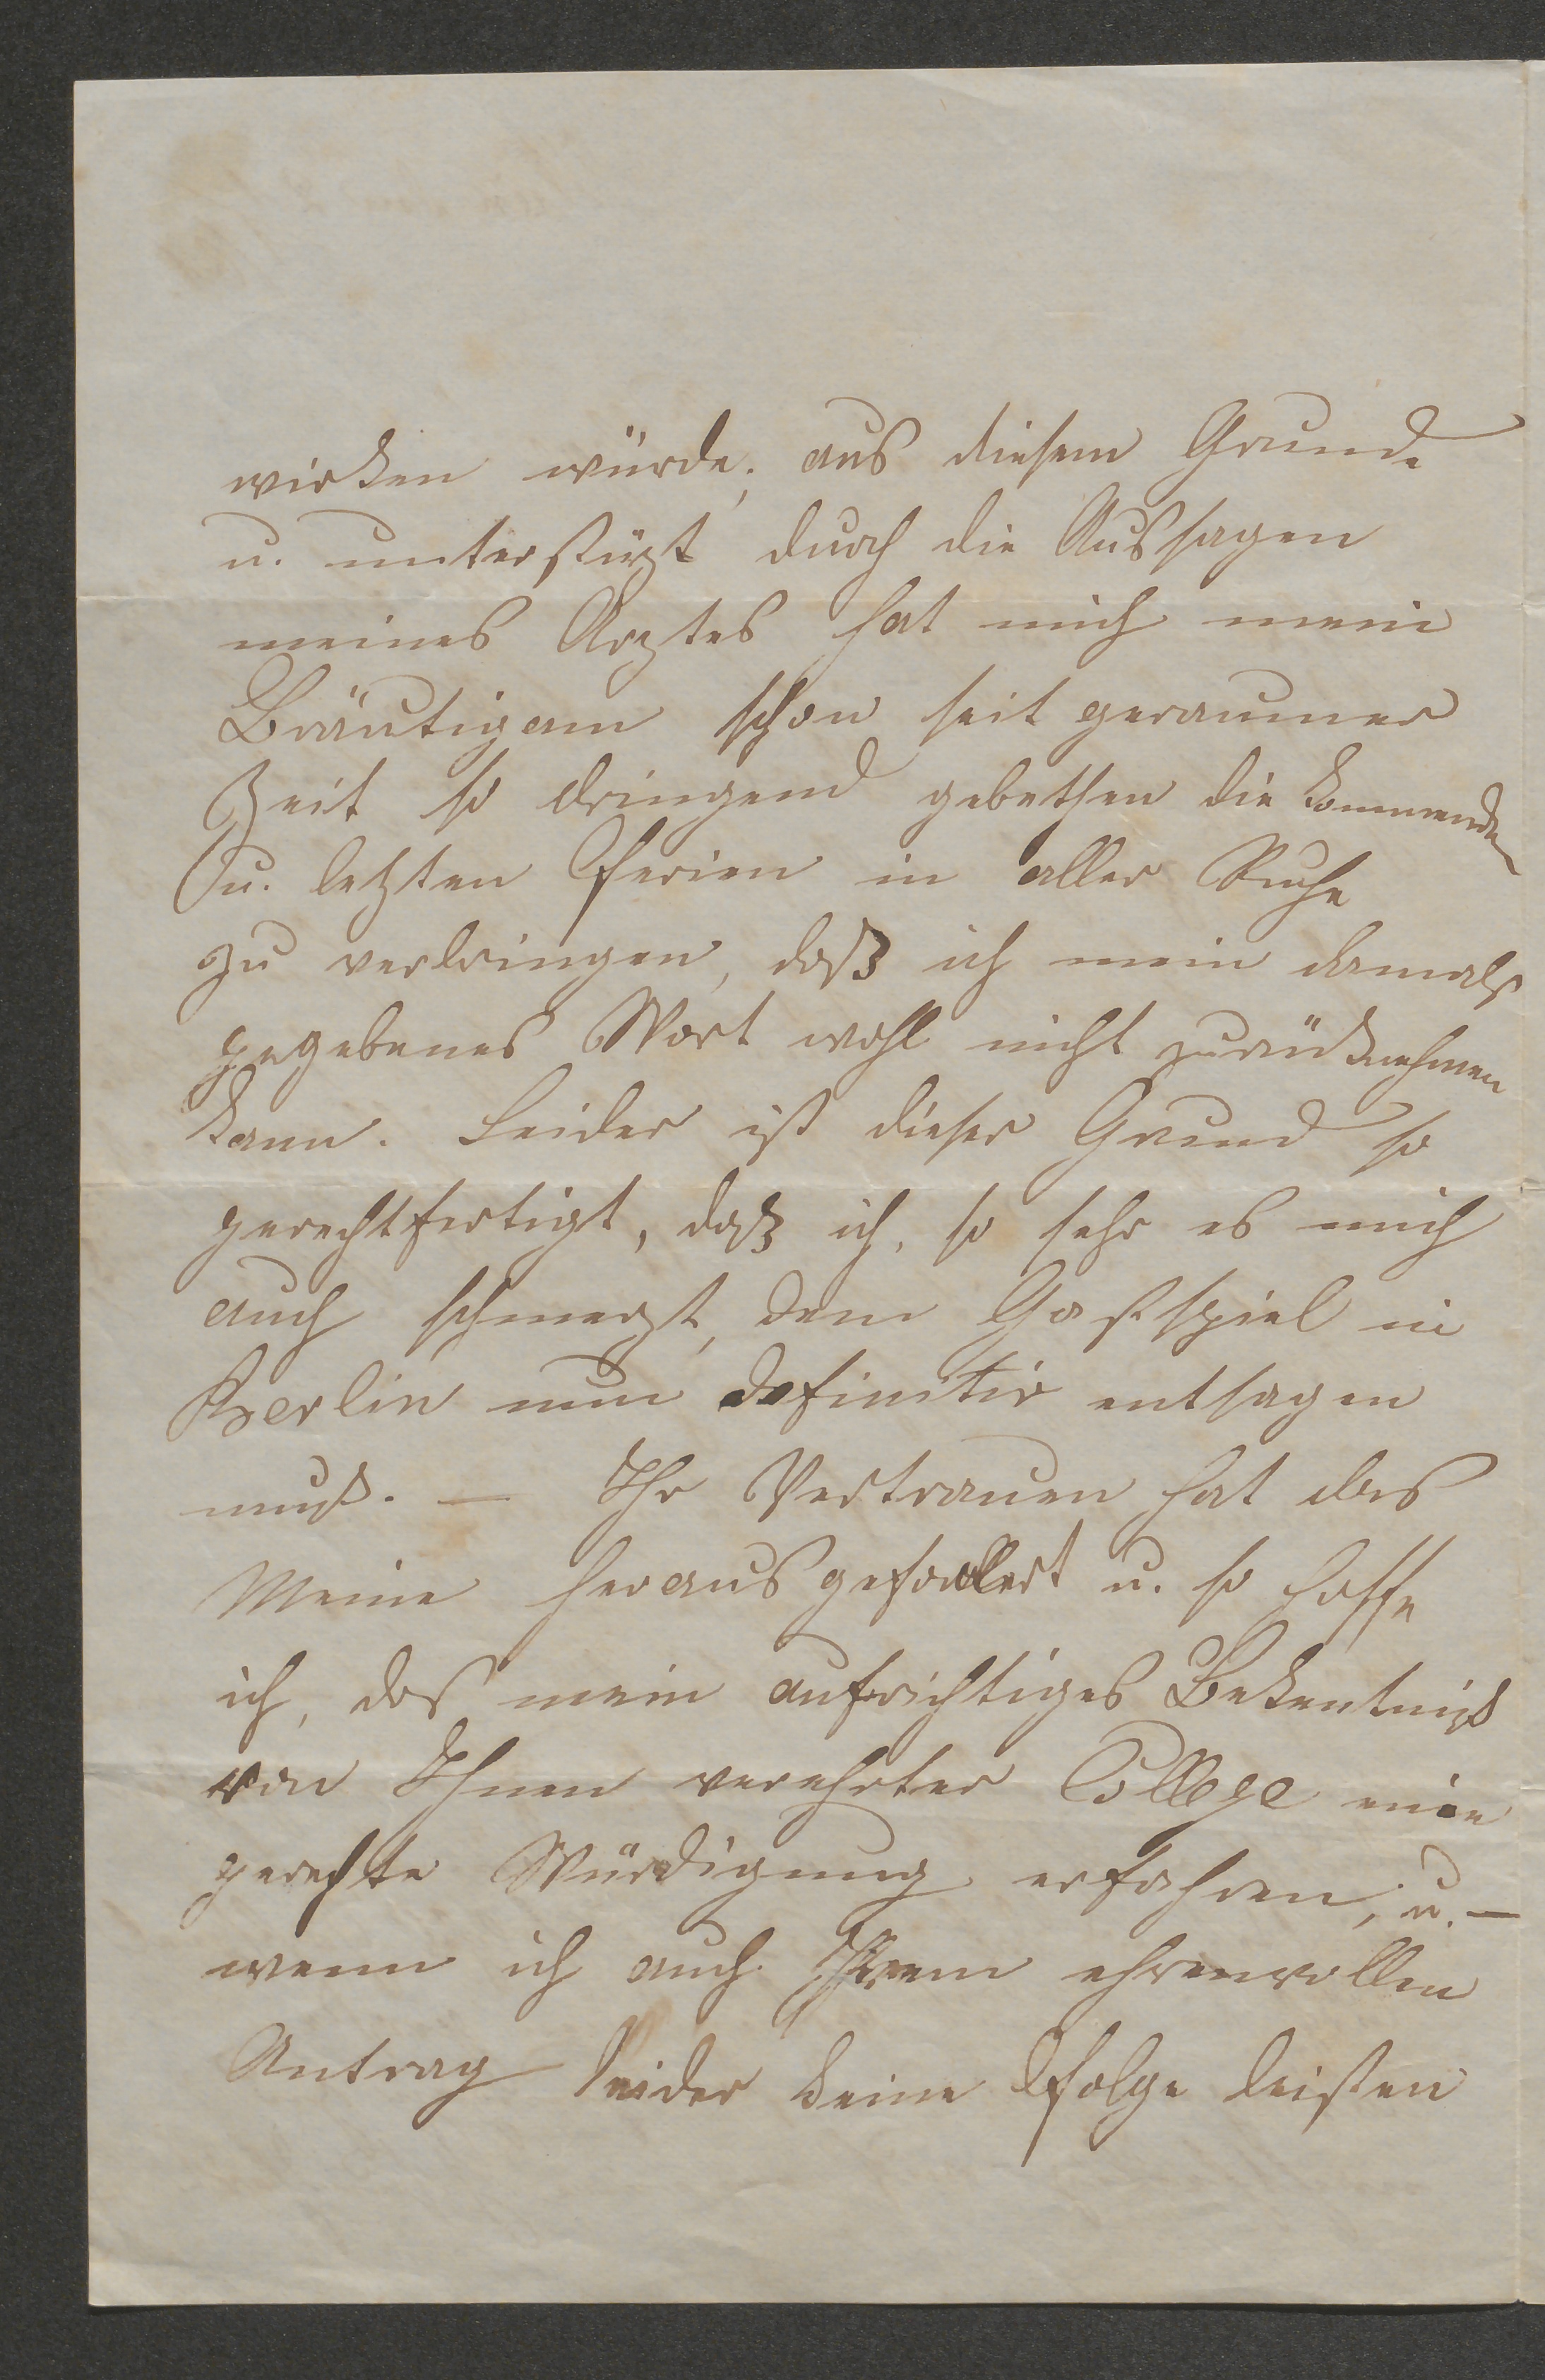 wirken würde; aus diesem Grunde
u. unterstüzt durch die Aussagen
meines Arztes hat mich mein
Bräutigam schon seit geraumer
Zeit so dringend gebethen die kommenden
u. letzten Ferien in aller Ruhe
zu verbringen, daß ich mein damals
gegebenes Wort wohl nicht zurücknehmen
kann. Leider ist dieser Grund so
gerechtfertigt, daß ich, so sehr es mich
auch schmerzt, dem Gastspiel in
Berlin nun definitiv entsagen
muß. — Ihr Vertrauen hat das
Meine herausgefordert u. so hoffe
ich, daß mein aufrichtiges Bekentniß
von Ihnen verehrter College eine
gerechte Würdigung erfahren, u. —
wenn ich auch Ihrem ehrenvollen
Antrag leider keine Folge leisten